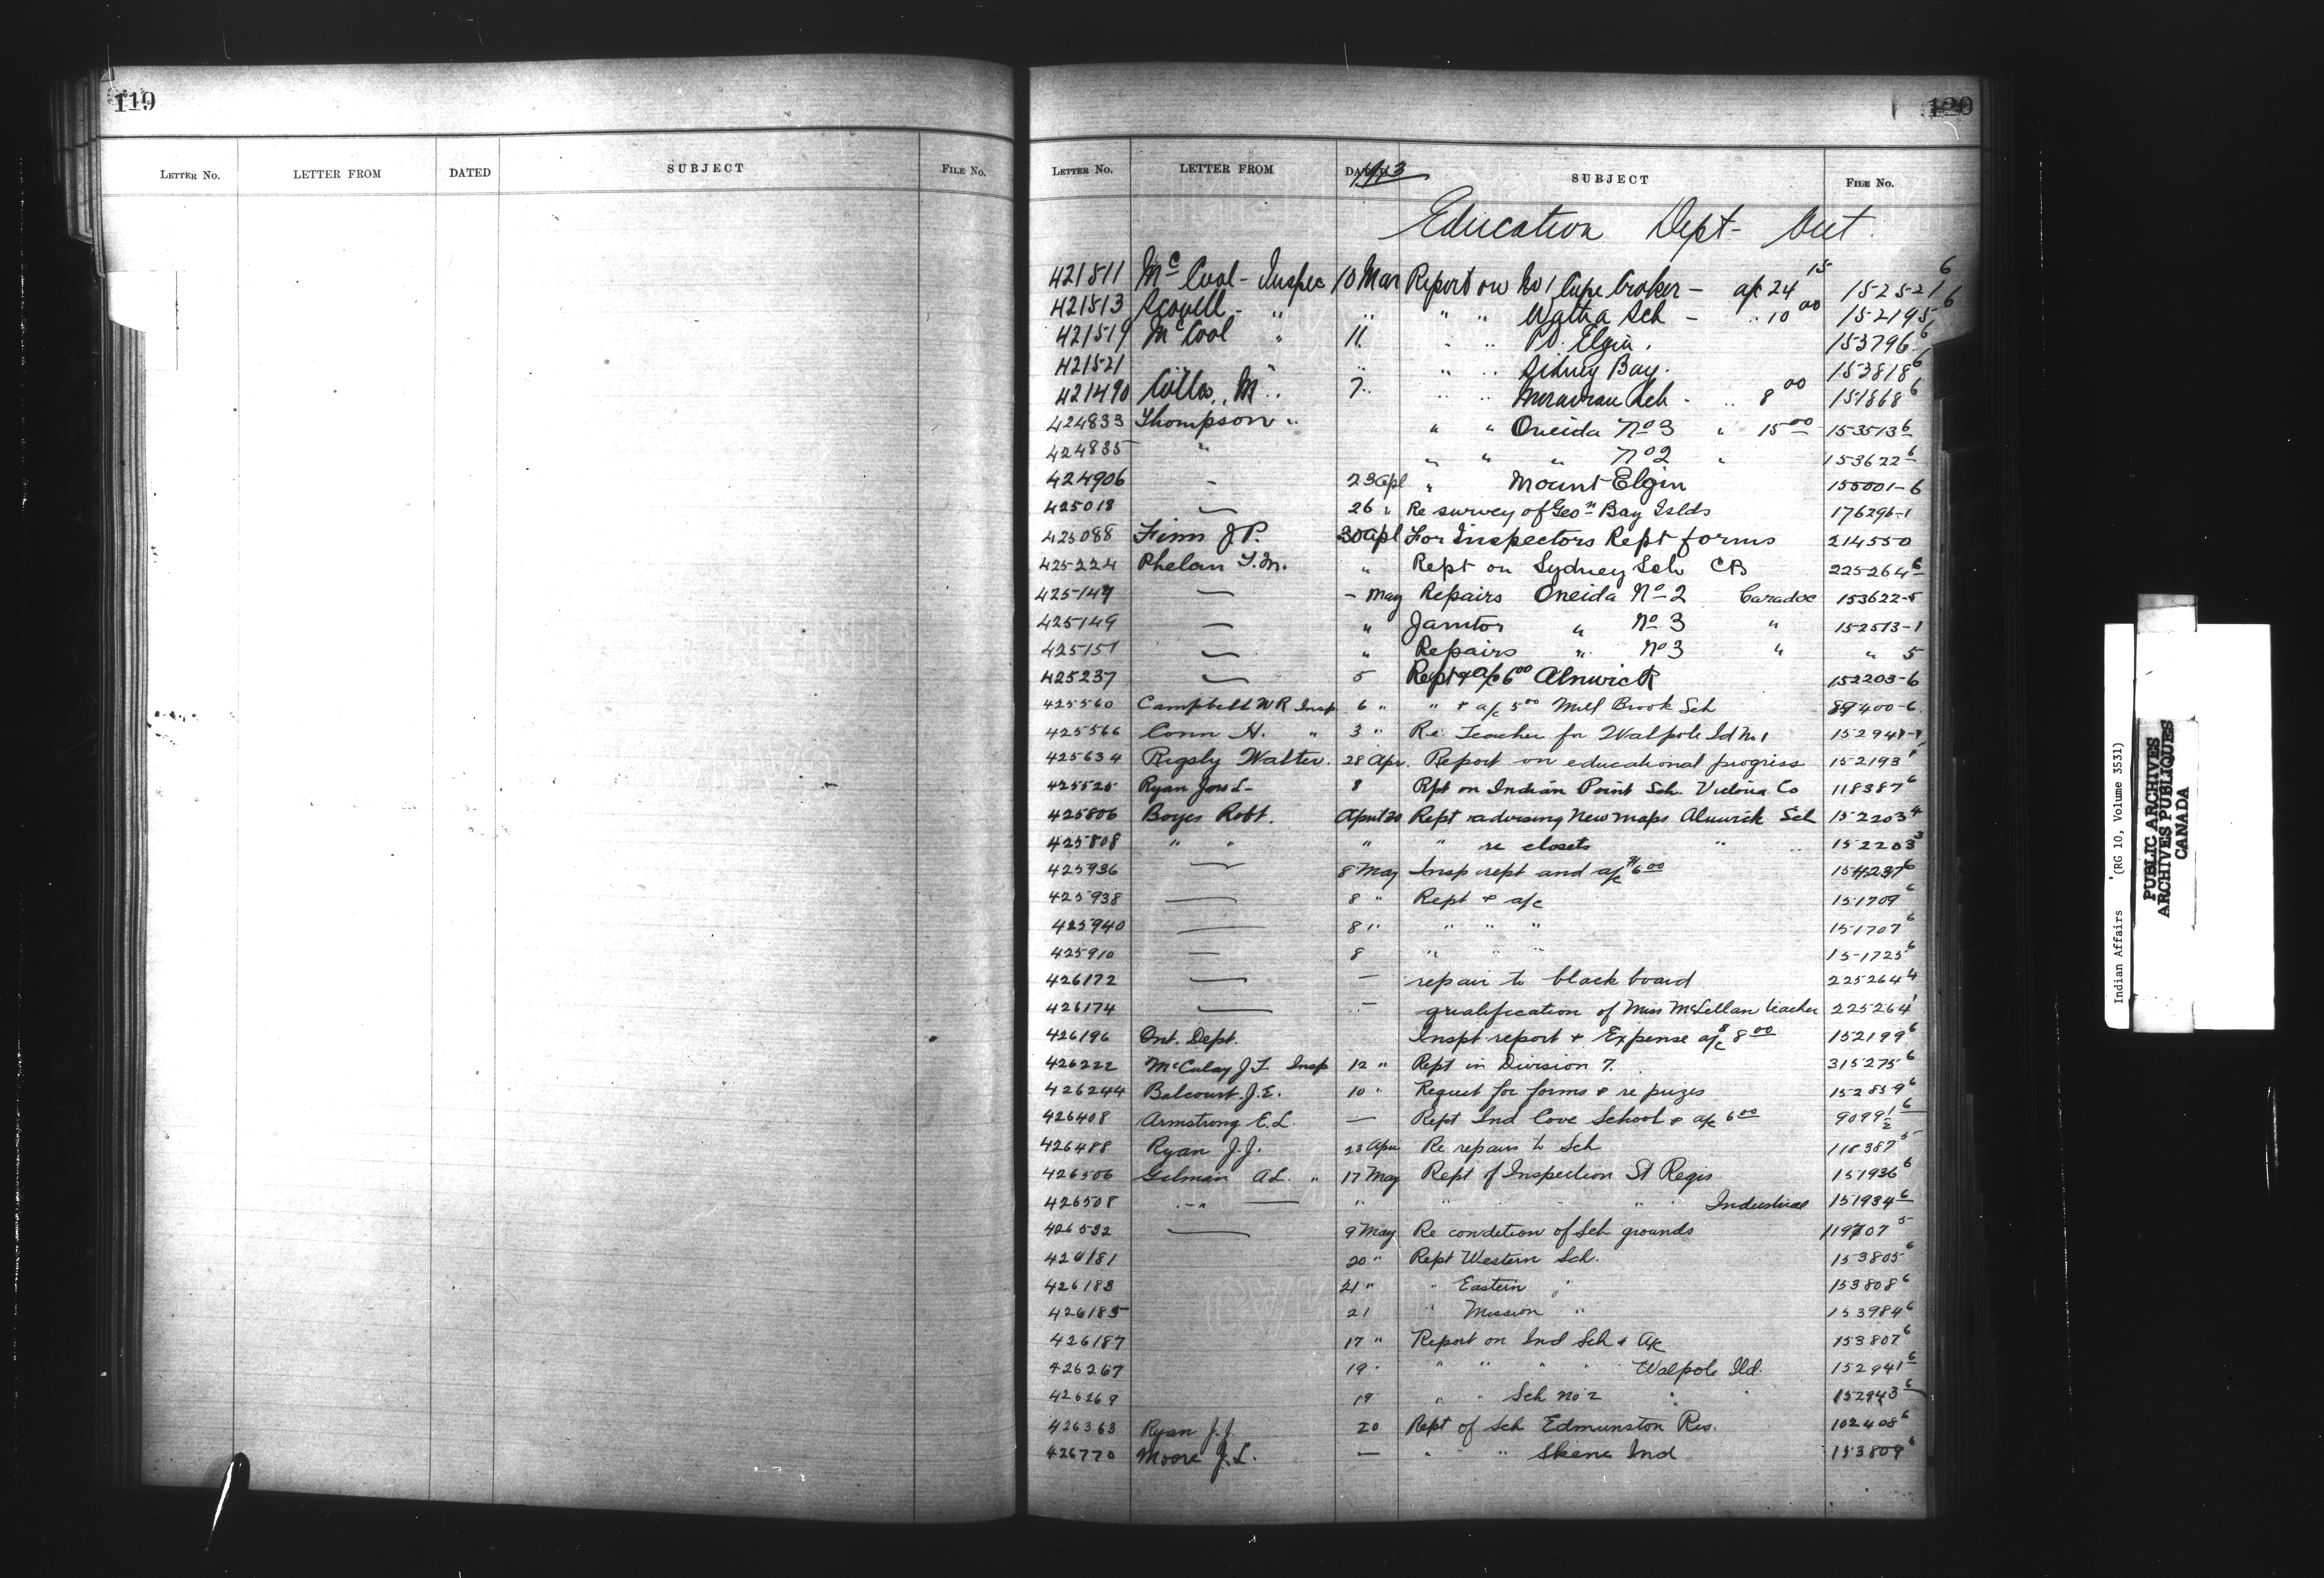 119
LETTER No. LETTER FROM DATED SUBJECT FILE No.
120
LETTER No. LETTER FROM DATED 1913 SUBJECT FILE No.
Education Dept- Out
421511 Mc Cool - Inspec 10 Mar Report on No 1 Cape Croker - a/c 24 15 152521 6
421513 Scovell - " " " " Sch - " 10 00 152195 6
421519 McCool " 11 " " Pt. Elgin. 153796 6
421521 " " " " " Sidney Bay. 153818 6
421490 M " 7 " " " Moravian Sch - " 8 00 151868 6
424833 Thompson " " " Oneida No 3 " 15 00 153513 6
424835 " " " " No 2 " 153622 6
424906 - 23 Apl " Mount Elgin 155001-6
425018 — 26 " Re survey of Geon Bay Islds 176296-1
425088 Finn J P. 30 Apl For Inspectors Rept forms 214550
425224 Phelan T. M. " Rept on Sydney Sch CB 225264 6
425147 — - May Repairs Oneida No 2 Caradoc 153622-5
425149 — " Janitor " No 3 " 152513-1
425151 — " Repairs " No 3 " " 5
425237 — 5 Rept & a/c 6 00 Alnwick 152203-6
425560 Campbell W R Insp 6 " " & a/c 5 00 Mill Brook Sch 89400-6.
425566 Conn H. " 3 " Re Teacher for Walpole Id No 1 152941-1
425634 Rigsby Walter. 28 Apr. Report on educational progress 152193 1
425525 Ryan Jas L- 8 Rpt on Indian Point Sch. Victoria Co 118387 6
425806 Boyes Robt. April 30 Rept advising New maps Alnwick Sch 152203 4
425808 " " " " re closets " " 152203 3
425936 — 8 May Insp rept and a/c $6 00 154237 6
425938 — 8 " Rept & a/c 151709 6
425940 — 8 " " " " 151707 6
425910 — 8 " " " 151725 6
426172 — — repair to black board 225264 4
426174 — — qualification of Miss McLellan teacher 225264 1
426196 Ont. Dept. Inspt report & Expense a/c $8 00 152199 6
426222 McCulay J. T. Insp 12 " Rept in Division 7. 315275 6
426244 Balcourt J. E. 10 " Request for forms & re prizes 152859 6
426408 Armstrong E. L. — Rept Ind Cove School & a/c 6 00 9099 1/2 6
426488 Ryan J. J. 23 Apri Re repairs to Sch 118387 5
426506 Gilman A L. " 17 May Rept of Inspection St Regis 151936 6
426508 -"- — " " " " Industrial 151934 6
426532 — 9 May Re condition of Sch grounds 119707 5
426181 20 " Rept Western Sch. 153805 6
426183 21 " " Eastern " 153808 6
426185 21 " Mission " 153984 6
426187 17 " Report on Ind Sch & A/c 153807 6
426267 19 " " " " " Walpole Ild. 152941 6
426269 19 " " Sch No 2 " 152943 6
426363 Ryan J. J. 20 Rept of Sch Edmunston Res. 102408 6
426770 Moore J. L. — " " " Skene Ind 153809 6
Indian Affairs (RG 10, Volume 3531)
PUBLIC ARCHIVES
ARCHIVES PUBLIQUES
CANADA